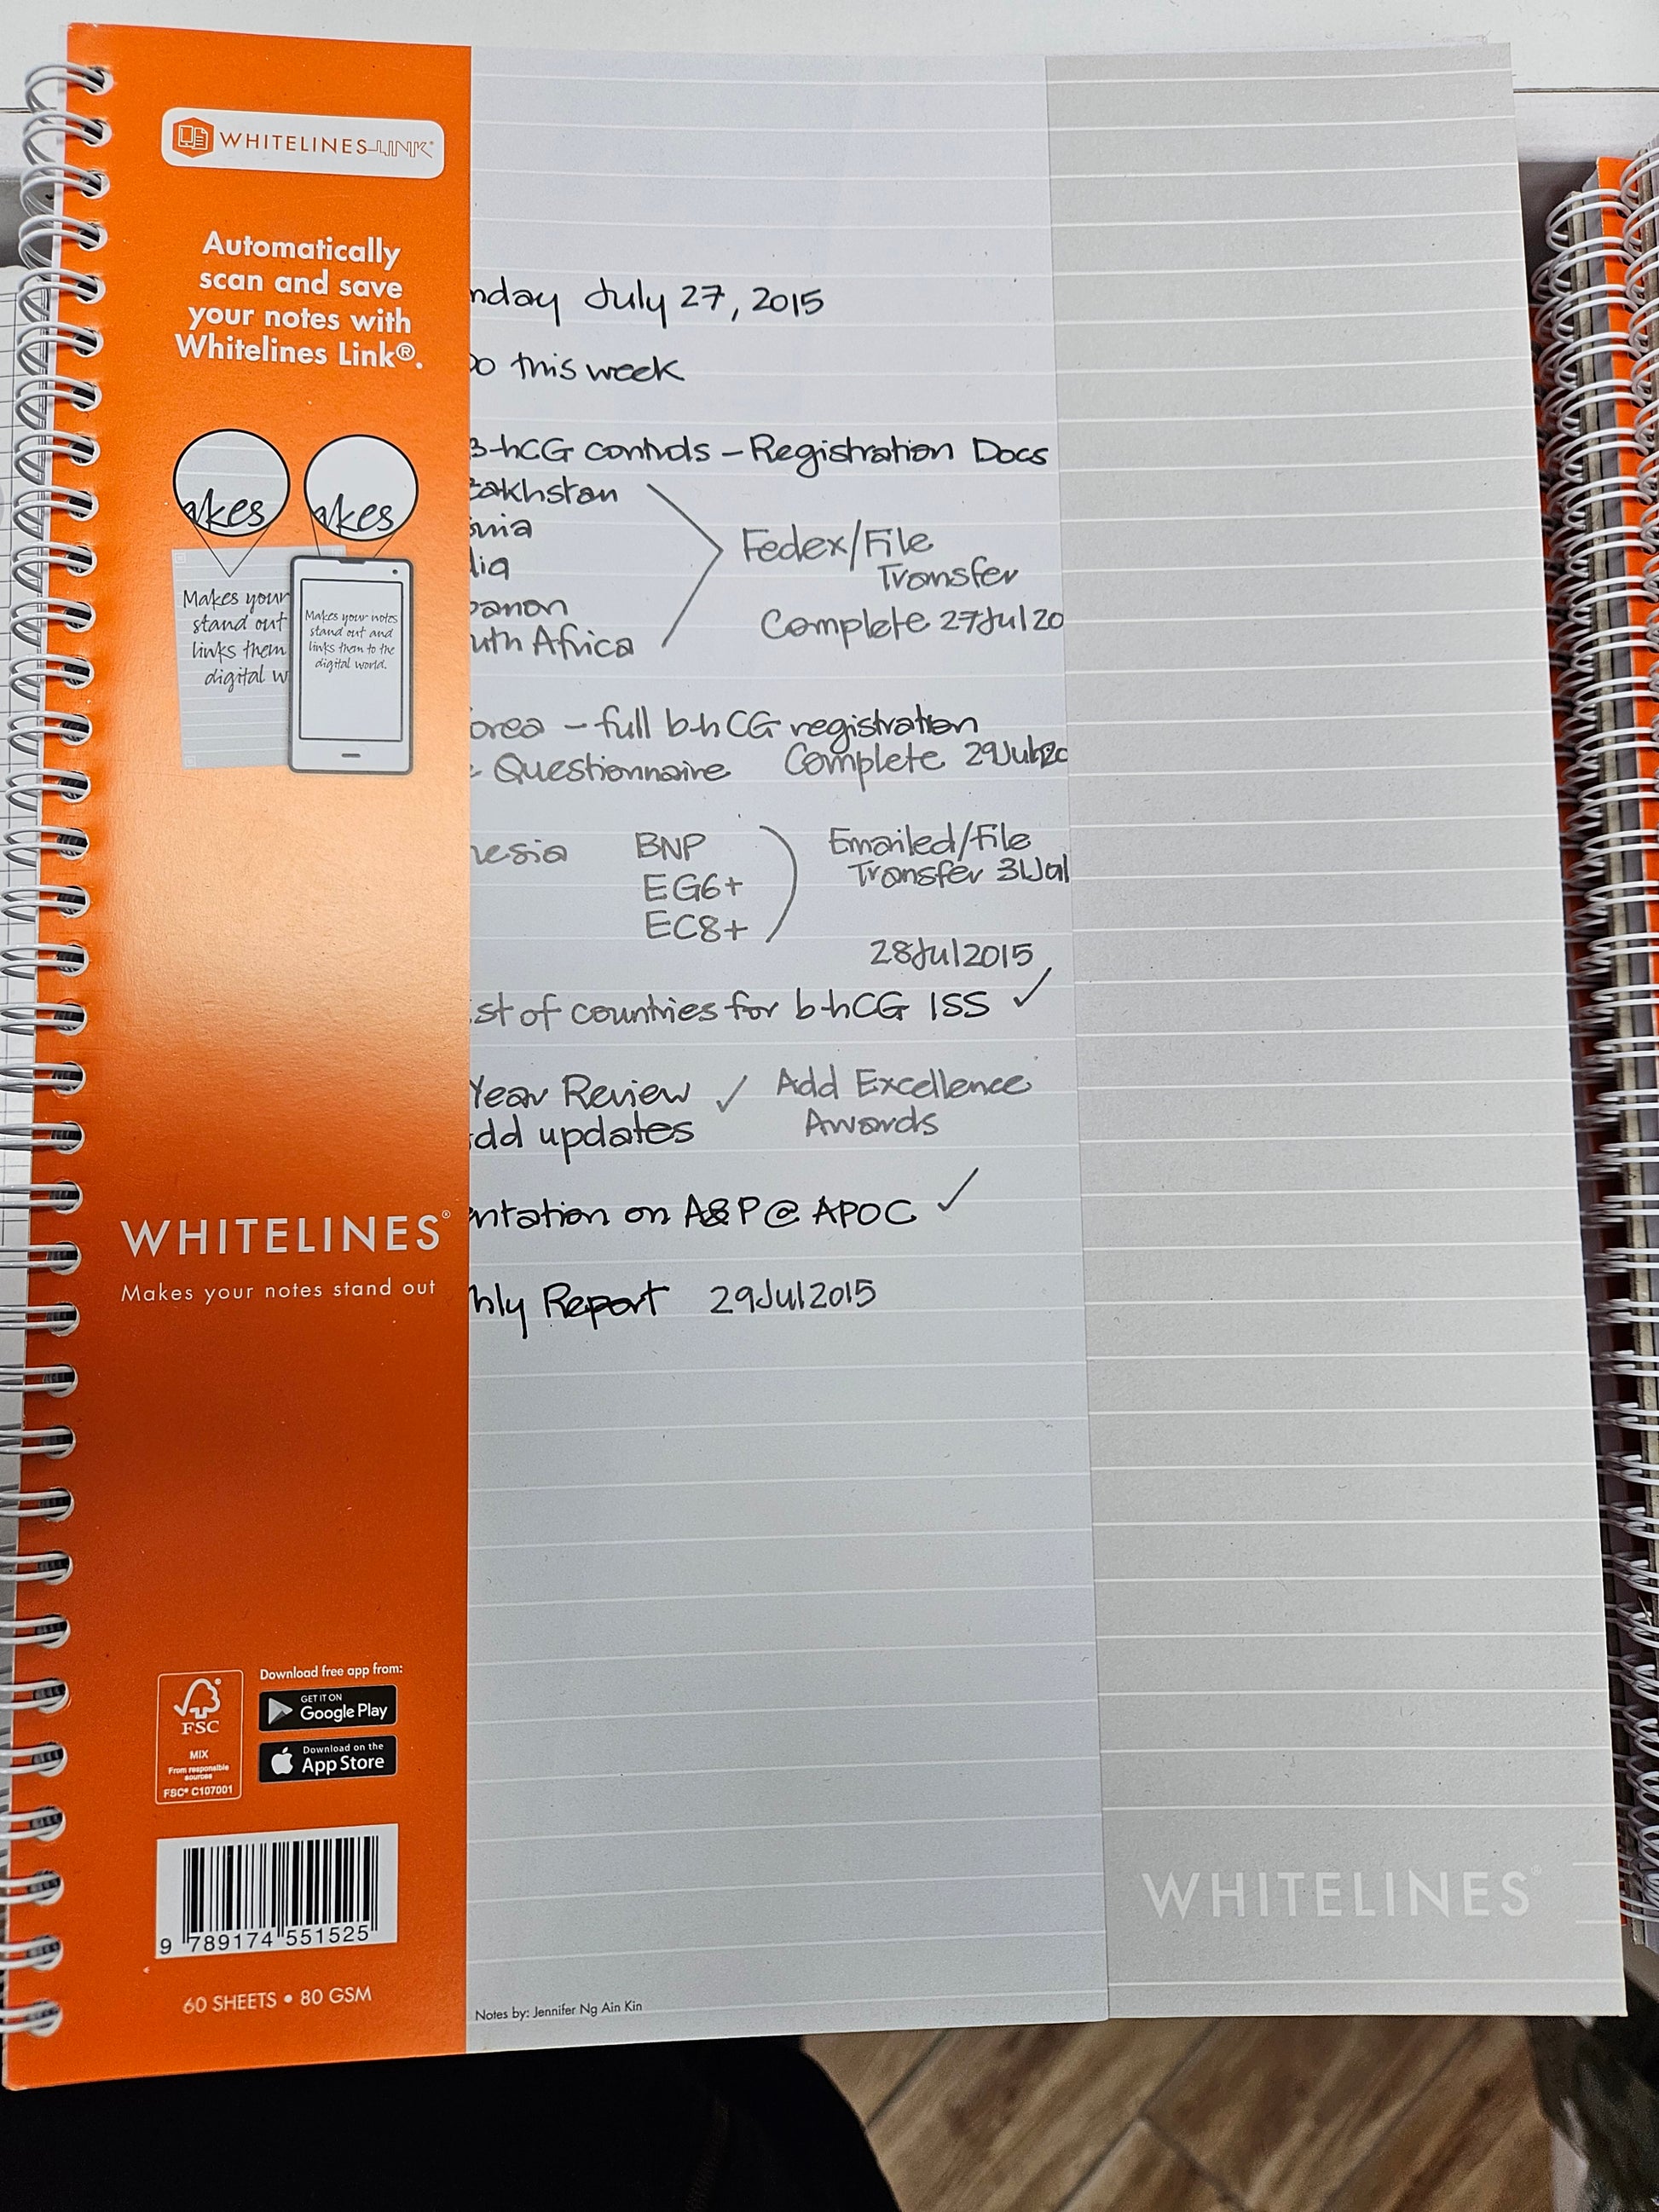 WHITELINES LINK®
Automatically
scan and save
your notes with
Whitelines Link®.
akes
akes
Makes your
stand out
links them
digital w
Makes your notes
stand out and
links them to the
digital world.
WHITELINES®
Makes your notes stand out
FSC®
MIX
From responsible
sources
FSC® C107001
Download free app from:
GET IT ON
Google Play
Download on the
App Store
9 789174 551525
60 SHEETS • 80 GSM
nday July 27, 2015
Do this week
B-hCG controls – Registration Docs
zakhstan
onia
dia
banon
uth Africa
Fedex/File
Transfer
Complete 27Jul20
orea – full b-hCG registration
Questionnaire Complete 29Jul20
nesia BNP
EG6+
EC8+
Emailed/File
Transfer 31Jul
28Jul2015
ist of countries for b-hCG ISS ✓
Year Review ✓ Add Excellence
Awards
dd updates
entation on A&P @ APOC ✓
hly Report 29Jul2015
Notes by: Jennifer Ng Ain Kin
WHITELINES®